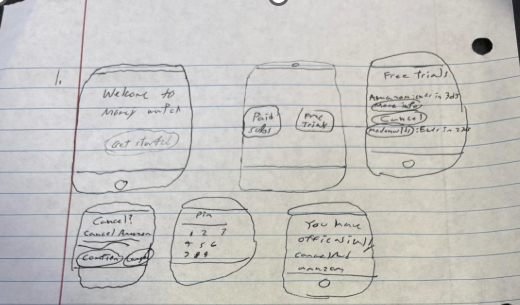 1.
Welcome to
Money watch
Get started
Paid
subs
Free
Trials
Free Trials
Amazon: ends in 3d
More info
Cancel
: Ends in 2
Cancel?
Cancel Amazon
Confirm
Pin
1 2 3
4 5 6
7 8 9
You have
officially
cancelled
amazon